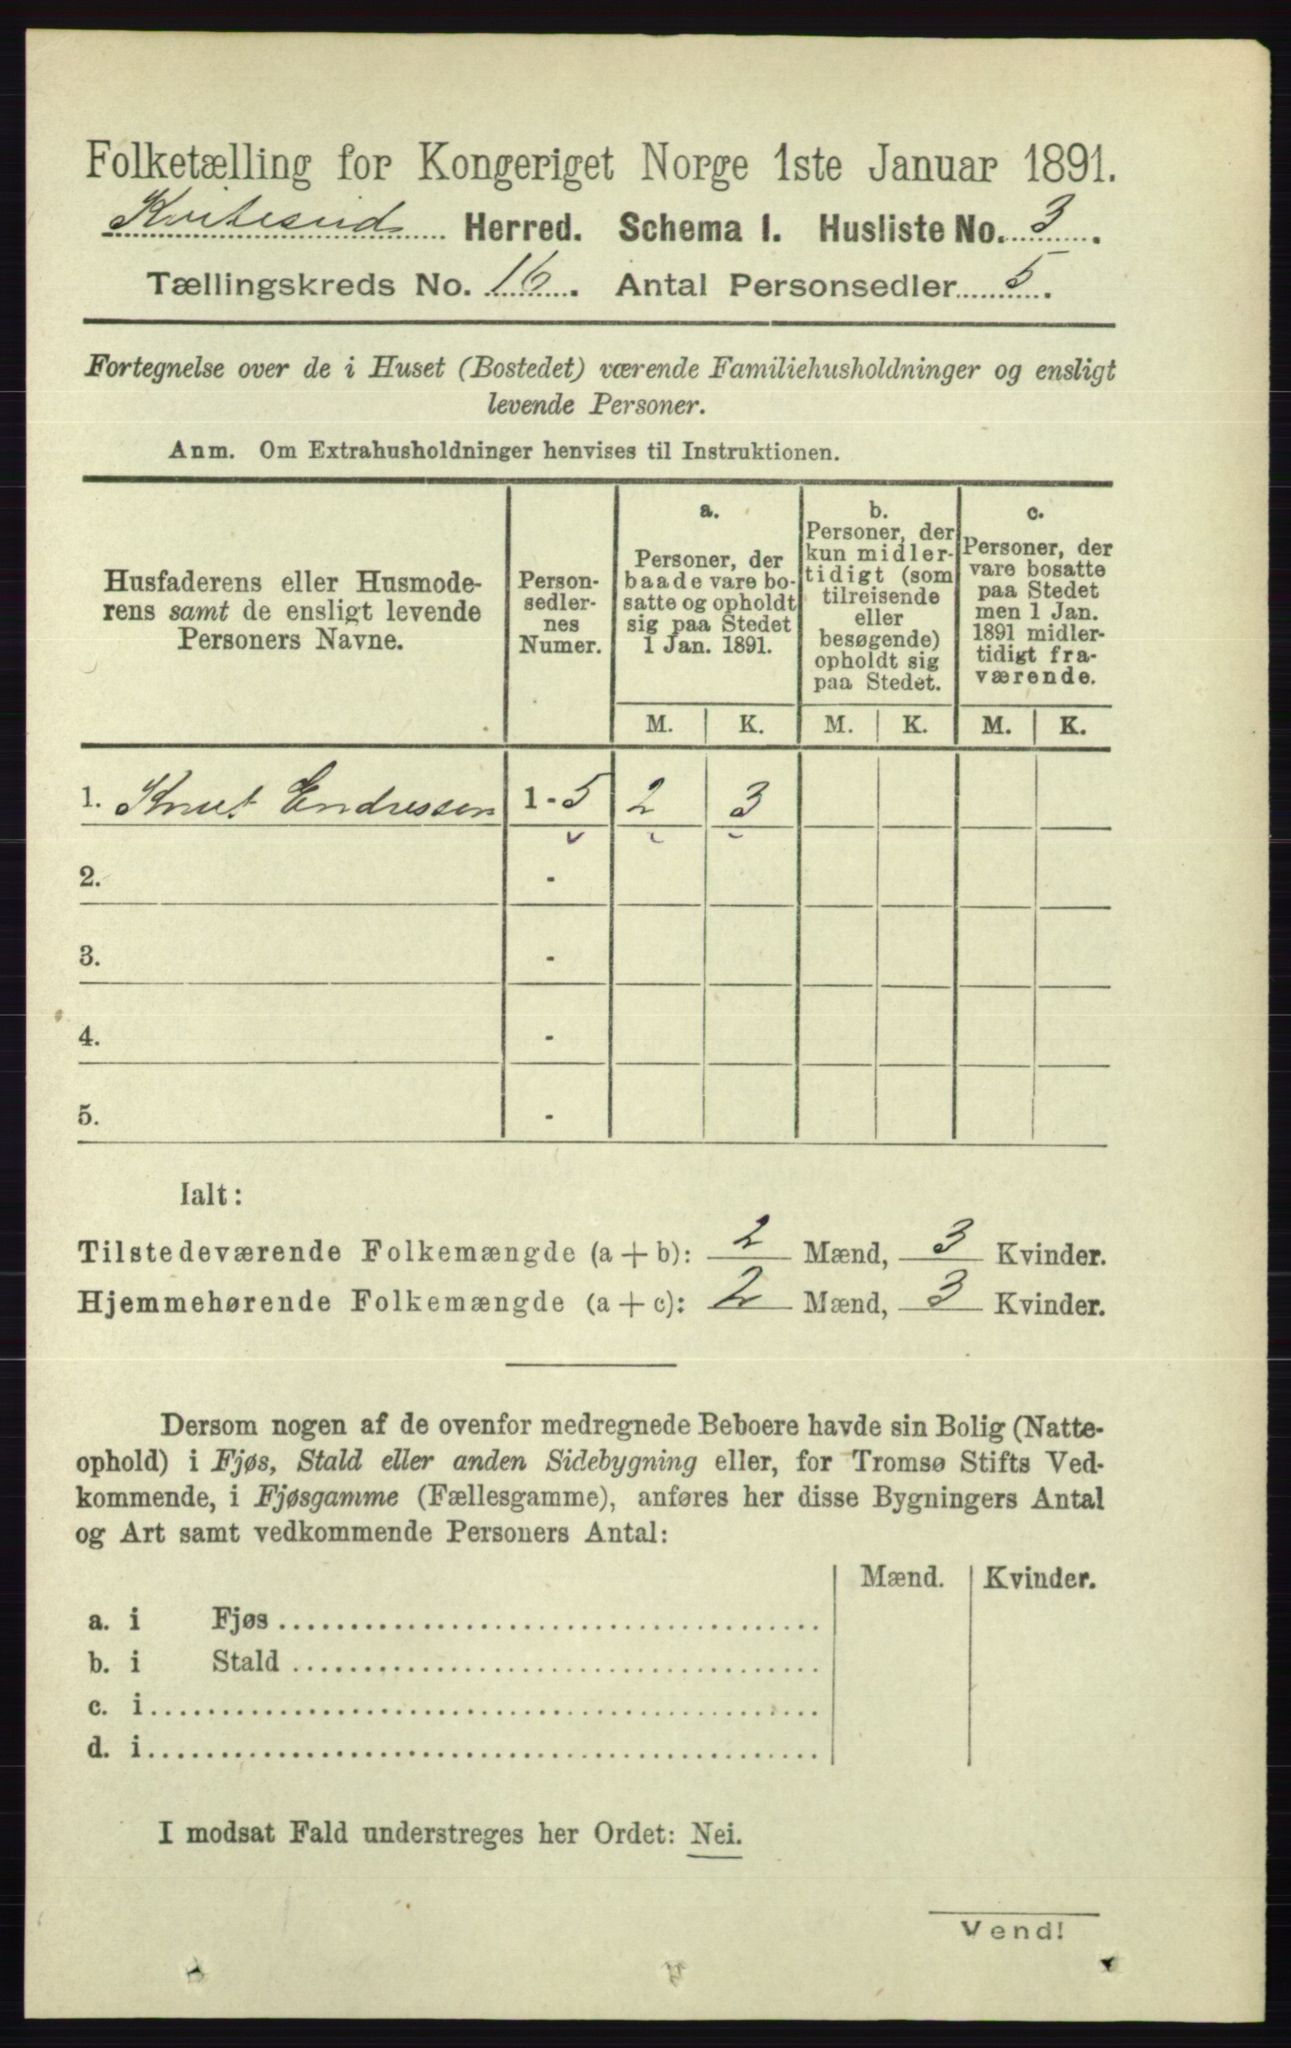 Folketælling for Kongeriget Norge 1ste Januar 1891.
Kviteseid Herred. Schema 1. Husliste No. 3.
Tællingskreds No. 16. Antal Personsedler 5.
Fortegnelse over de i Huset (Bostedet) værende Familiehusholdninger og ensligt
levende Personer.
Anm. Om Extrahusholdninger henvises til Instruktionen.
Husfaderens eller Husmode-
rens samt de ensligt levende
Personers Navne.
Person-
sedler-
nes
Numer.
a.
Personer, der
baade vare bo-
satte og opholdt
sig paa Stedet
1 Jan. 1891.
b.
Personer, der
kun midler-
tidigt (som
tilreisende
eller
besøgende)
opholdt sig
paa Stedet.
c.
Personer, der
vare bosatte
paa Stedet
men 1 Jan.
1891 midler-
tidigt fra-
værende.
M. K. M. K. M. K.
1. Knut Endressen 1 - 5 2 3
2. -
3. -
4. -
5. -
Ialt:
Tilstedeværende Folkemængde (a + b): 2 Mænd, 3 Kvinder.
Hjemmehørende Folkemængde (a + c): 2 Mænd, 3 Kvinder.
Dersom nogen af de ovenfor medregnede Beboere havde sin Bolig (Natte-
ophold) i Fjøs, Stald eller anden Sidebygning eller, for Tromsø Stifts Ved-
kommende, i Fjøsgamme (Fællesgamme), anføres her disse Bygningers Antal
og Art samt vedkommende Personers Antal:
Mænd. Kvinder.
a. i Fjøs
b. i Stald
c. i
d. i
I modsat Fald understreges her Ordet: Nei.
Vend!